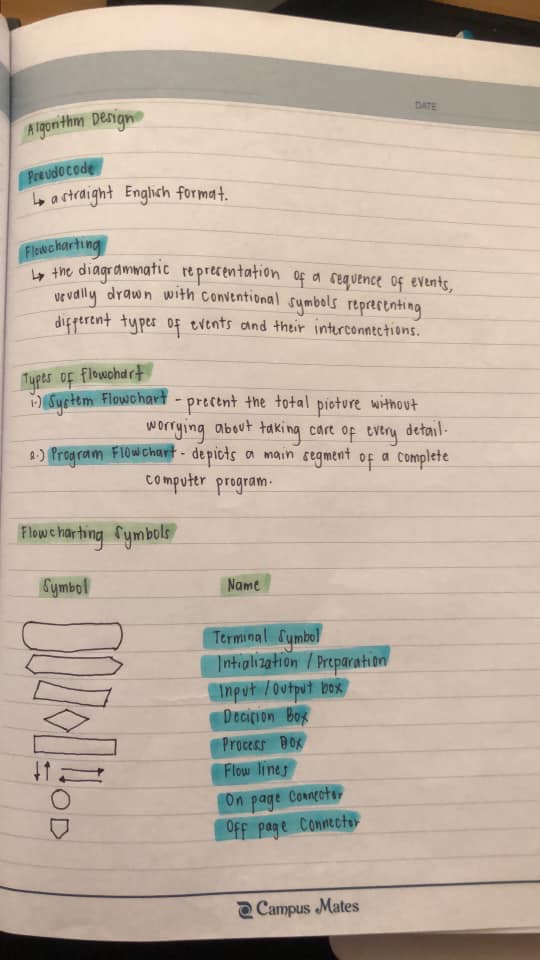 DATE
Algorithm Design
Pseudocode
↳ a straight English format.
Flowcharting
↳ the diagrammatic representation of a sequence of events,
usually drawn with conventional symbols representing
different types of events and their interconnections.
Types of Flowchart
1.) System Flowchart - present the total picture without
worrying about taking care of every detail.
2.) Program Flowchart - depicts a main segment of a complete
computer program.
Flowcharting Symbols
Symbol Name
Terminal Symbol
Intialization / Preparation
Input / Output box
Decision Box
Process Box
Flow lines
On page Connector
Off page Connector
Campus Mates